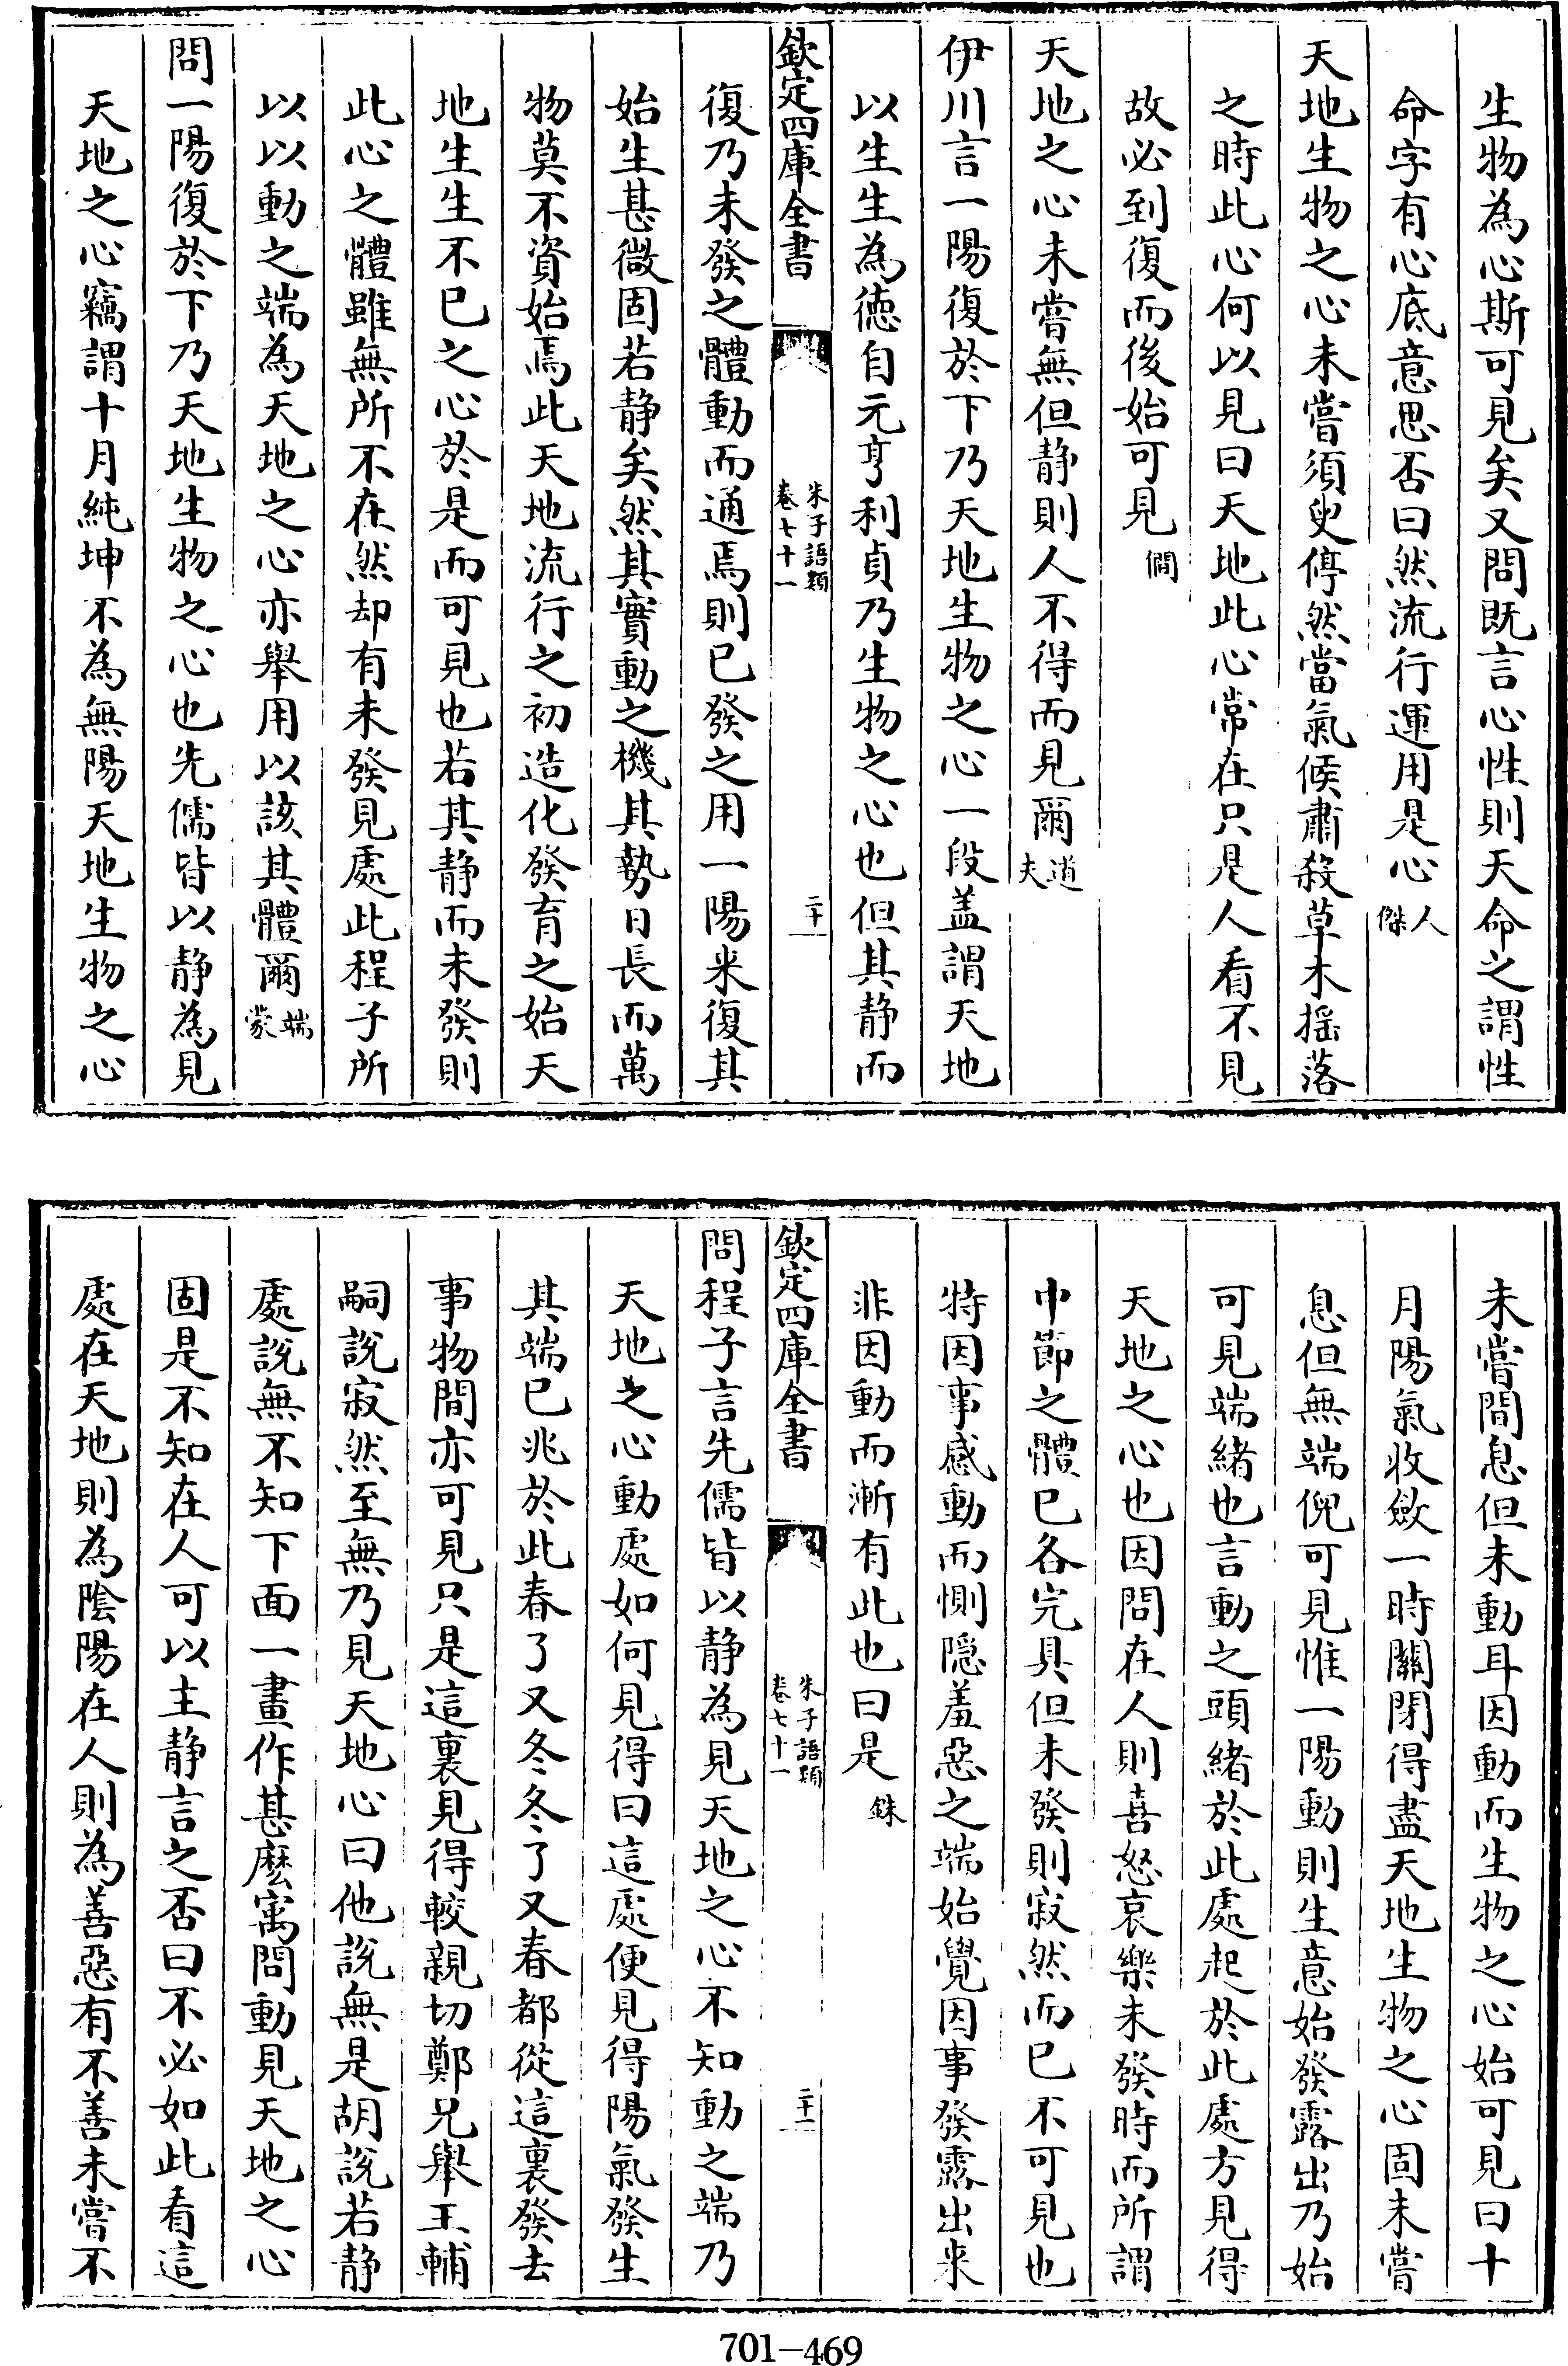 生物為心斯可見矣又問既言心性則天命之謂性
命字有心底意思否曰然流行運用是心人傑
天地生物之心未嘗須臾停然當氣候肅殺草木揺落
之時此心何以見曰天地此心常在只是人看不見
故必到復而後始可見僩
天地之心未嘗無但静則人不得而見爾道夫
伊川言一陽復於下乃天地生物之心一段盖謂天地
以生生為徳自元亨利貞乃生物之心也但其静而
欽定四庫全書 朱子語類卷七十一 二十
復乃未發之體動而通焉則已發之用一陽来復其
始生甚微固若静矣然其實動之機其勢日長而萬
物莫不資始焉此天地流行之初造化發育之始天
地生生不已之心於是而可見也若其静而未發則
此心之體雖無所不在然却有未發見處此程子所
以以動之端為天地之心亦舉用以該其體爾端蒙
問一陽復於下乃天地生物之心也先儒皆以静為見
天地之心竊謂十月純坤不為無陽天地生物之心
未嘗間息但未動耳因動而生物之心始可見曰十
月陽氣收斂一時關閉得盡天地生物之心固未嘗
息但無端倪可見惟一陽動則生意始發露出乃始
可見端緒也言動之頭緒於此處起於此處方見得
天地之心也因問在人則喜怒哀樂未發時而所謂
中節之體已各完具但未發則寂然而已不可見也
特因事感動而惻隱羞惡之端始覺因事發露出来
非因動而漸有此也曰是銖
欽定四庫全書 朱子語類卷七十一 二十一
問程子言先儒皆以静為見天地之心不知動之端乃
天地之心動處如何見得曰這處便見得陽氣發生
其端已兆於此春了又冬冬了又春都從這裏發去
事物間亦可見只是這裏見得較親切鄭兄舉王輔
嗣說寂然至無乃見天地心曰他說無是胡說若静
處說無不知下面一畫作甚麽寓問動見天地之心
固是不知在人可以主静言之否曰不必如此看這
處在天地則為陰陽在人則為善惡有不善未嘗不
701-469